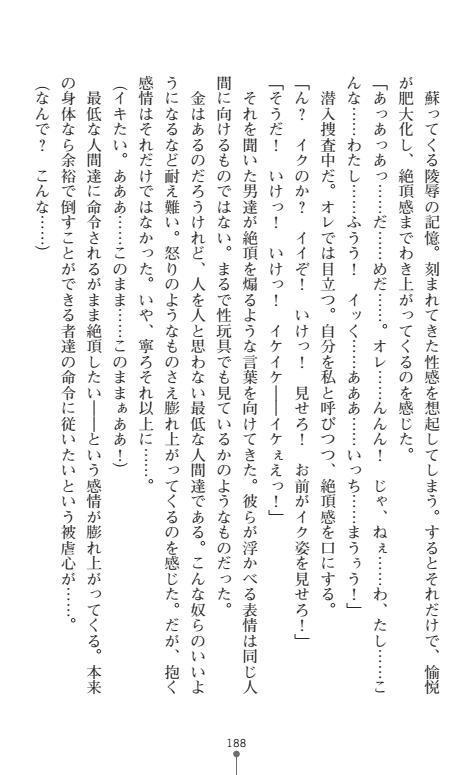 蘇ってくる陵辱の記憶。刻まれてきた性感を想起してしまう。するとそれだけで、愉悦
が肥大化し、絶頂感までわき上がってくるのを感じた。
「あっあっあっ……だ……めだ……。オレ……んんん！　じゃ、ねぇ……わ、たし……こ
んな……わたし……ふうう！　イッく……あああ……いっち……まうぅう！」
　潜入捜査中だ。オレでは目立つ。自分を私と呼びつつ、絶頂感を口にする。
「ん？　イクのか？　イイぞ！　いけっ！　見せろ！　お前がイク姿を見せろ！」
「そうだ！　いけっ！　いけっ！　イケイケ――イケぇえっ！」
　それを聞いた男達が絶頂を煽るような言葉を向けてきた。彼らが浮かべる表情は同じ人
間に向けるものではない。まるで性玩具でも見ているかのようなものだった。
　金はあるのだろうけれど、人を人と思わない最低な人間達である。こんな奴らのいいよ
うになるなど耐え難い。怒りのようなものさえ膨れ上がってくるのを感じた。だが、抱く
感情はそれだけではなかった。いや、寧ろそれ以上に……。
（イキたい。あああ……このまま……このままぁああ！）
　最低な人間達に命令されるがまま絶頂したい――という感情が膨れ上がってくる。本来
の身体なら余裕で倒すことができる者達の命令に従いたいという被虐心が……。
（なんで？　こんな……）
188